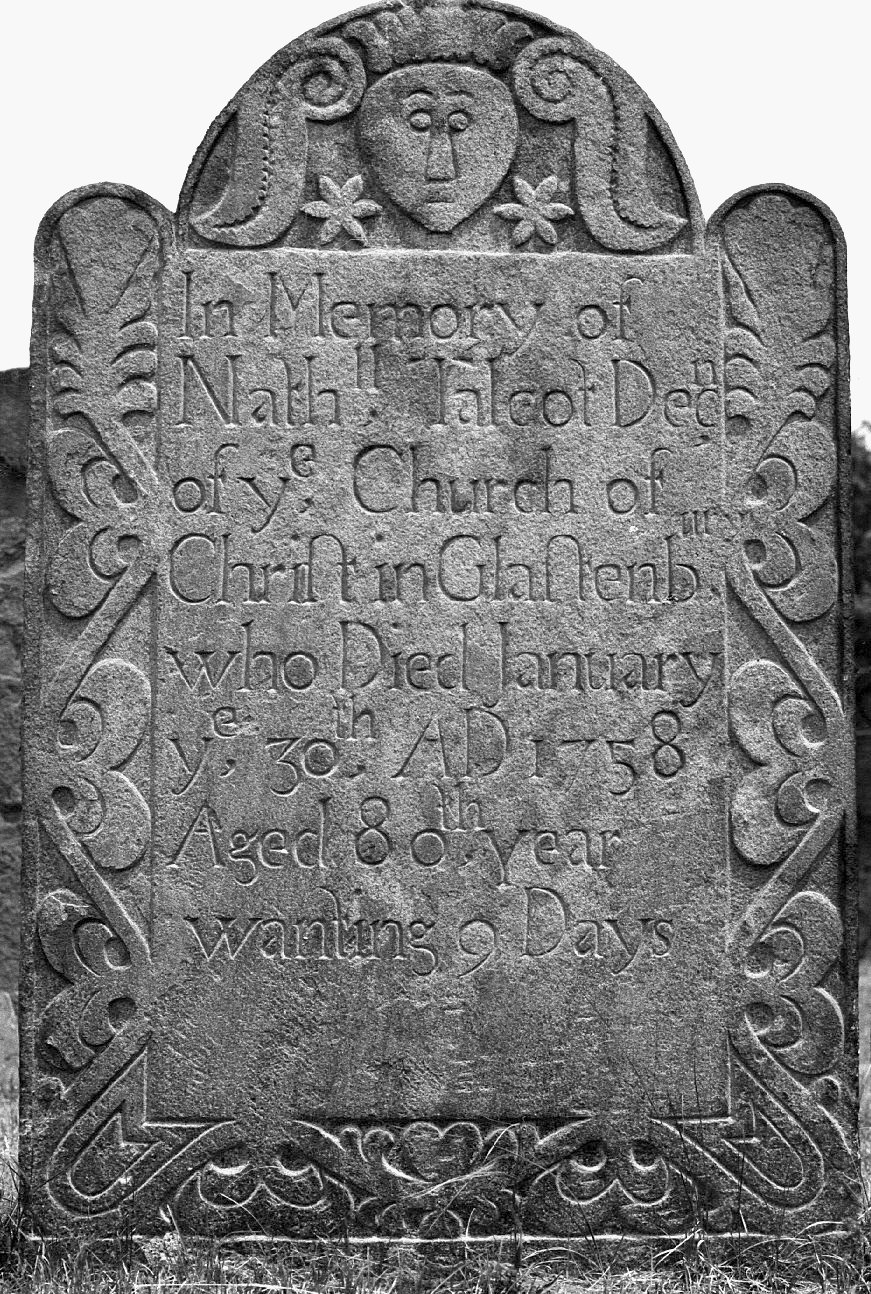 In Memory of
Nathˡˡ. Talcot Decⁿ.
of yᵉ. Church of
Chriſt in Glaſtenbᵘʳʸ.
who Died January
yᵉ, 30ᵗʰ. AD 1758
Aged 80ᵗʰ, year
wanting 9 Days